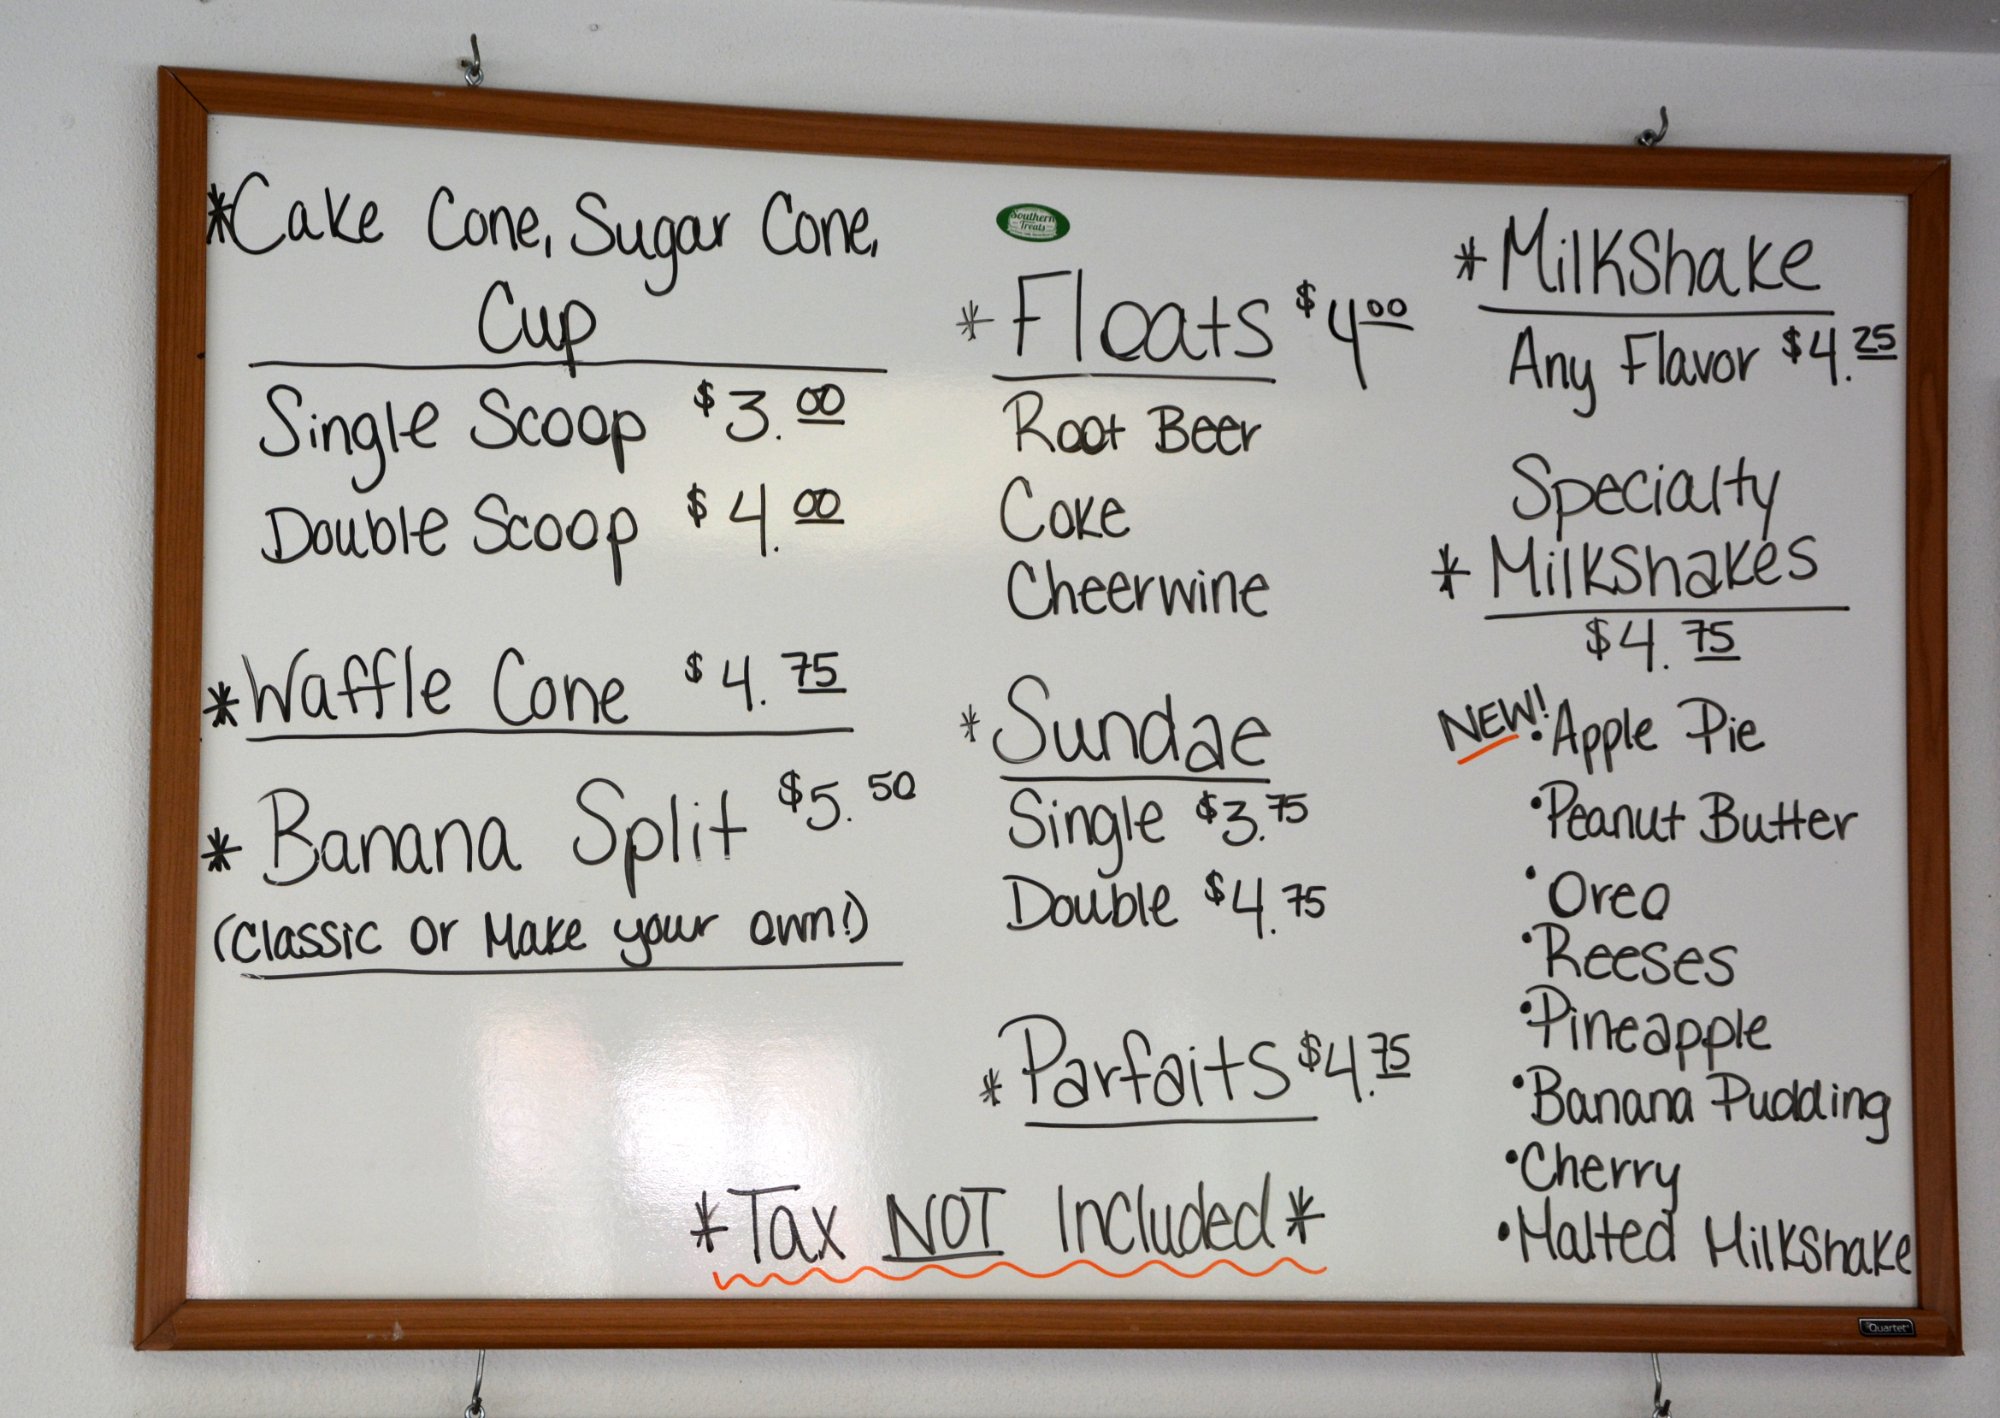 *Cake Cone, Sugar Cone,
Cup
Single Scoop $3.00
Double Scoop $4.00
*Waffle Cone $4.75
*Banana Split $5.50
(Classic or Make your own!)
Southern
Treats
*Floats $4 00
Root Beer
Coke
Cheerwine
*Sundae
Single $3.75
Double $4.75
*Parfaits $4.75
*Milkshake
Any Flavor $4.25
Specialty
*Milkshakes
$4.75
NEW! •Apple Pie
•Peanut Butter
•Oreo
•Reeses
•Pineapple
•Banana Pudding
•Cherry
•Malted Milkshake
*Tax NOT Included*
Quartet